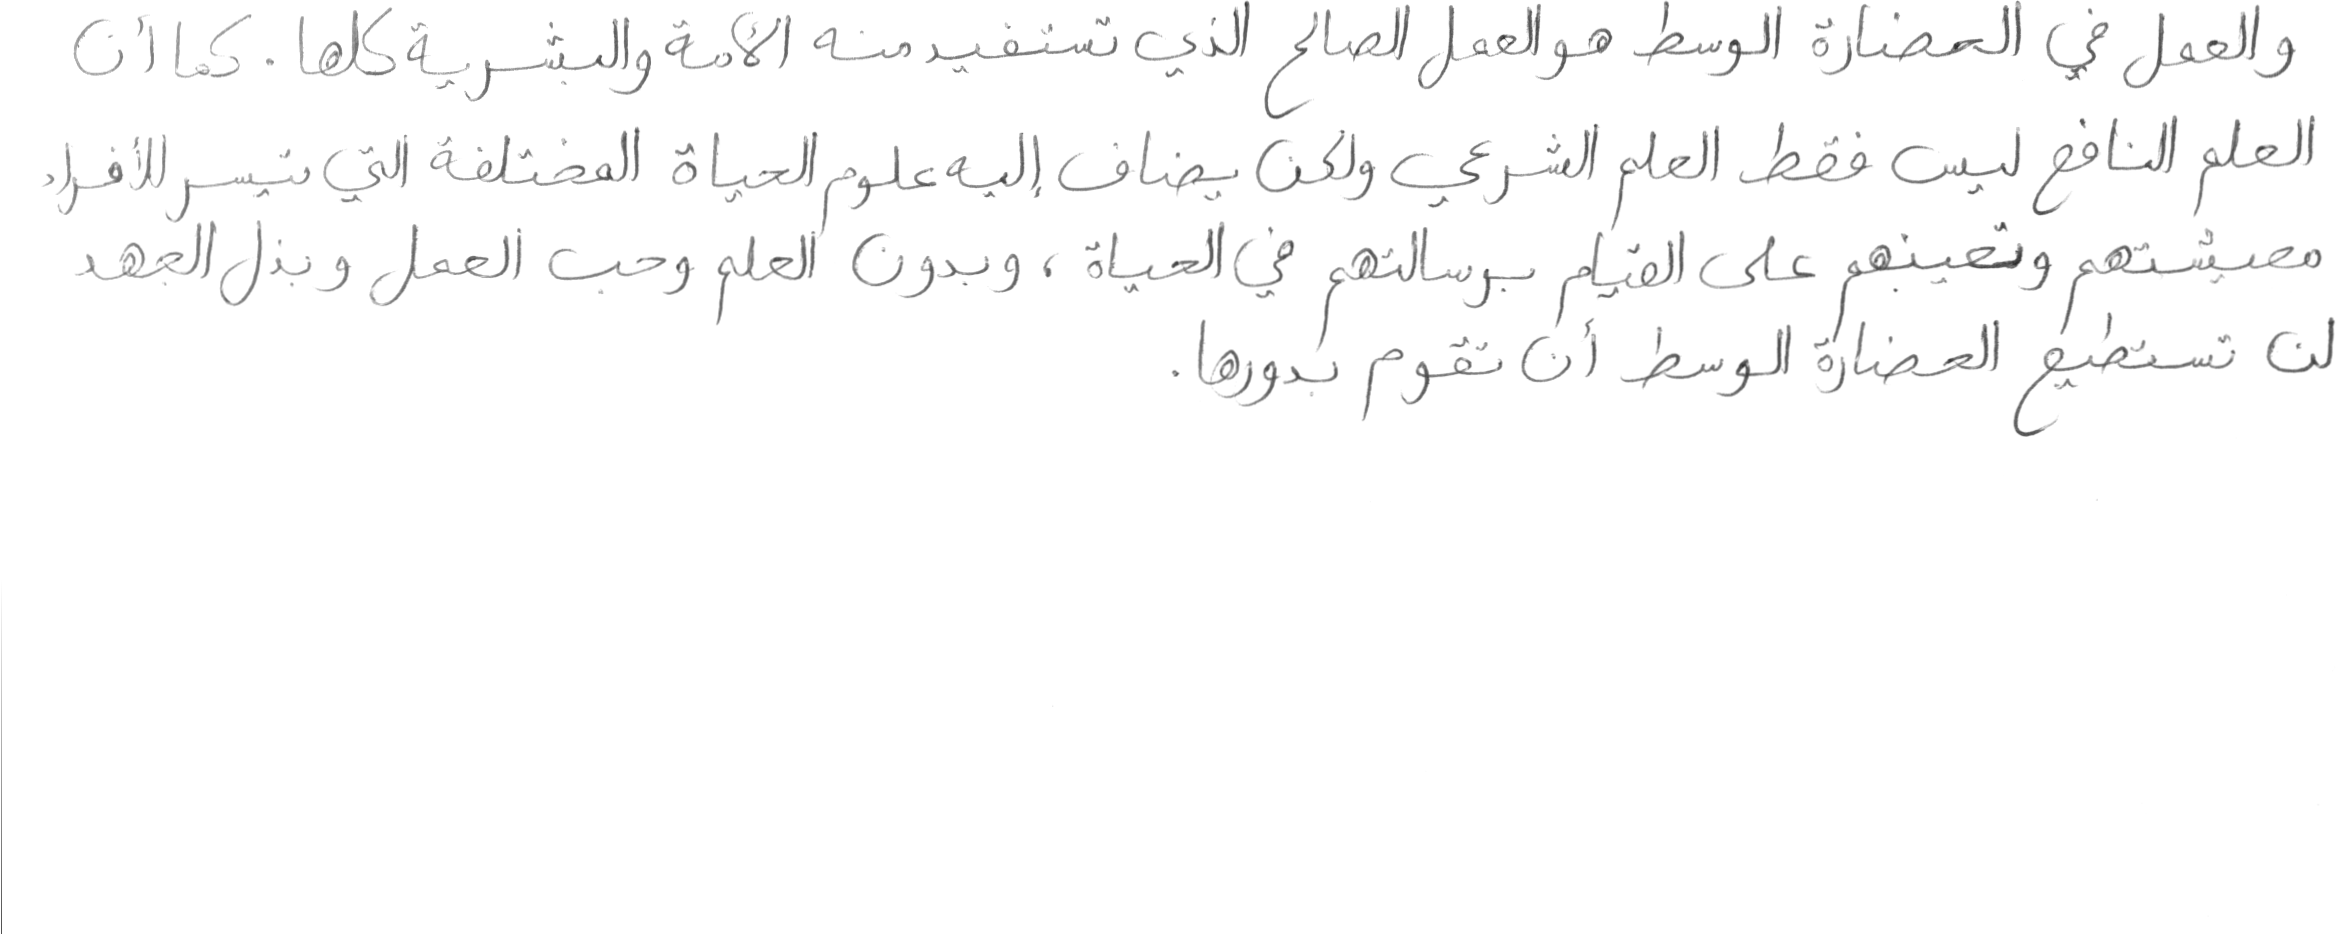 والعمل في الحضارة الوسط هو العمل الصالح الذي تستفيد منه الأمة والبشرية كلها . كما أن
العلم النافع ليس فقط العلم الشرعي ولكن يضاف إليه علوم الحياة المختلفة التي تيسر للأفراد
معيشتهم وتعينهم على القيام برسالتهم في الحياة ، وبدون العلم وحب العمل وبذل الجهد
لن تستطيع الحضارة الوسط أن تقوم بدورها .